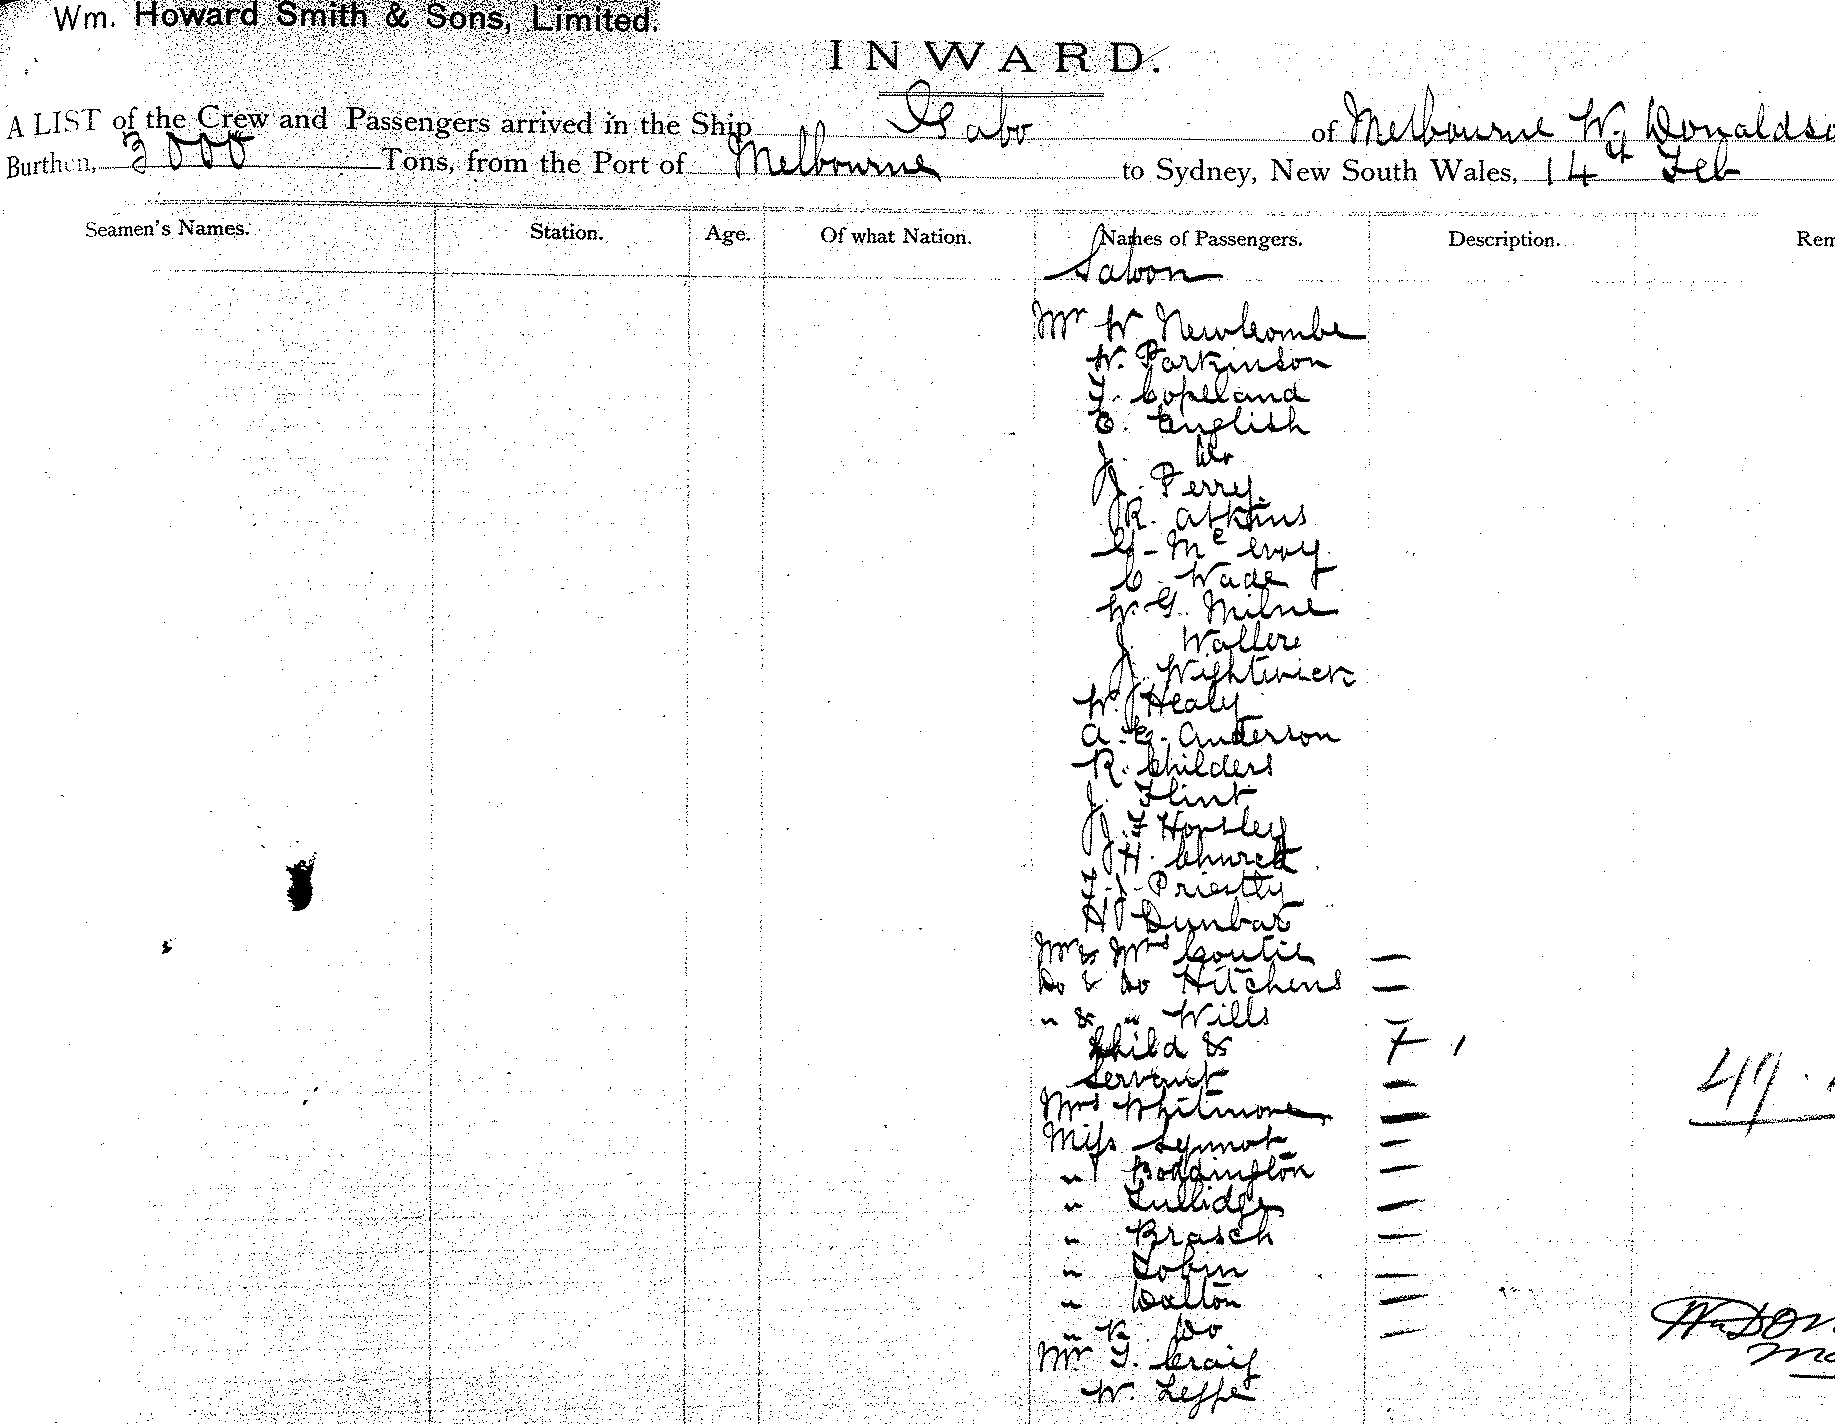 Wm. Howard Smith & Sons, Limited.
INWARD.
A LIST of the Crew and Passengers arrived in the Ship Gabo of Melbourne Wm Donaldso
Burthen, 3000 Tons, from the Port of Melbourne to Sydney, New South Wales, 14th Feb
Seamen's Names. Station. Age. Of what Nation. Names of Passengers. Description. Rem
Saloon
Mr W Newcombe
W. Parkinson
F. Copeland
E. English
J. Do
J. Perry
R. Atkins
G- Mc evoy
C. Wade
W. G. Milne
J.
J. Wightwick
W. J Healy
A. G. Anderson
R. Childers
J. Flint
J. F Horsley
J H. Church
F. J- Priestly
H J Dunbar
Mr & Mrs Coutie —
Do & Do Hitchens —
" & " Wills —
Child & 1
Servant —
Mrs Whitmore —
Miss Synnot —
" Boddington —
" Tullidge —
" Brasch —
" Tobin —
" Dalton —
" K. Do —
Mr T. Craig
W.
49